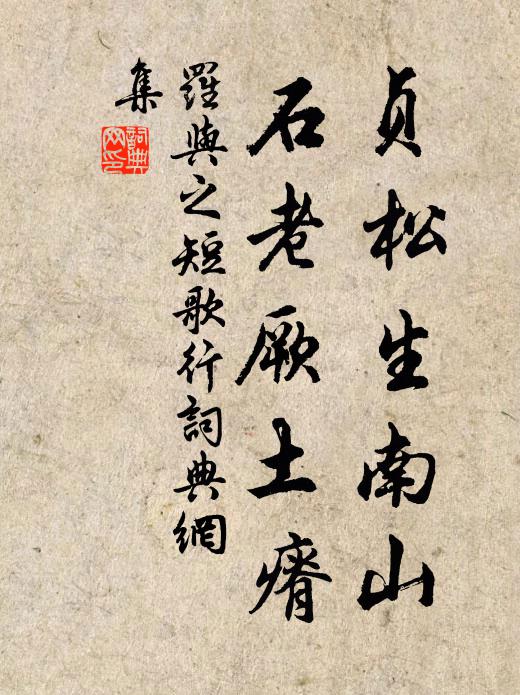 貞松生南山
石老厥土瘠
羅與之短歌行詞典網
集
詞典網印